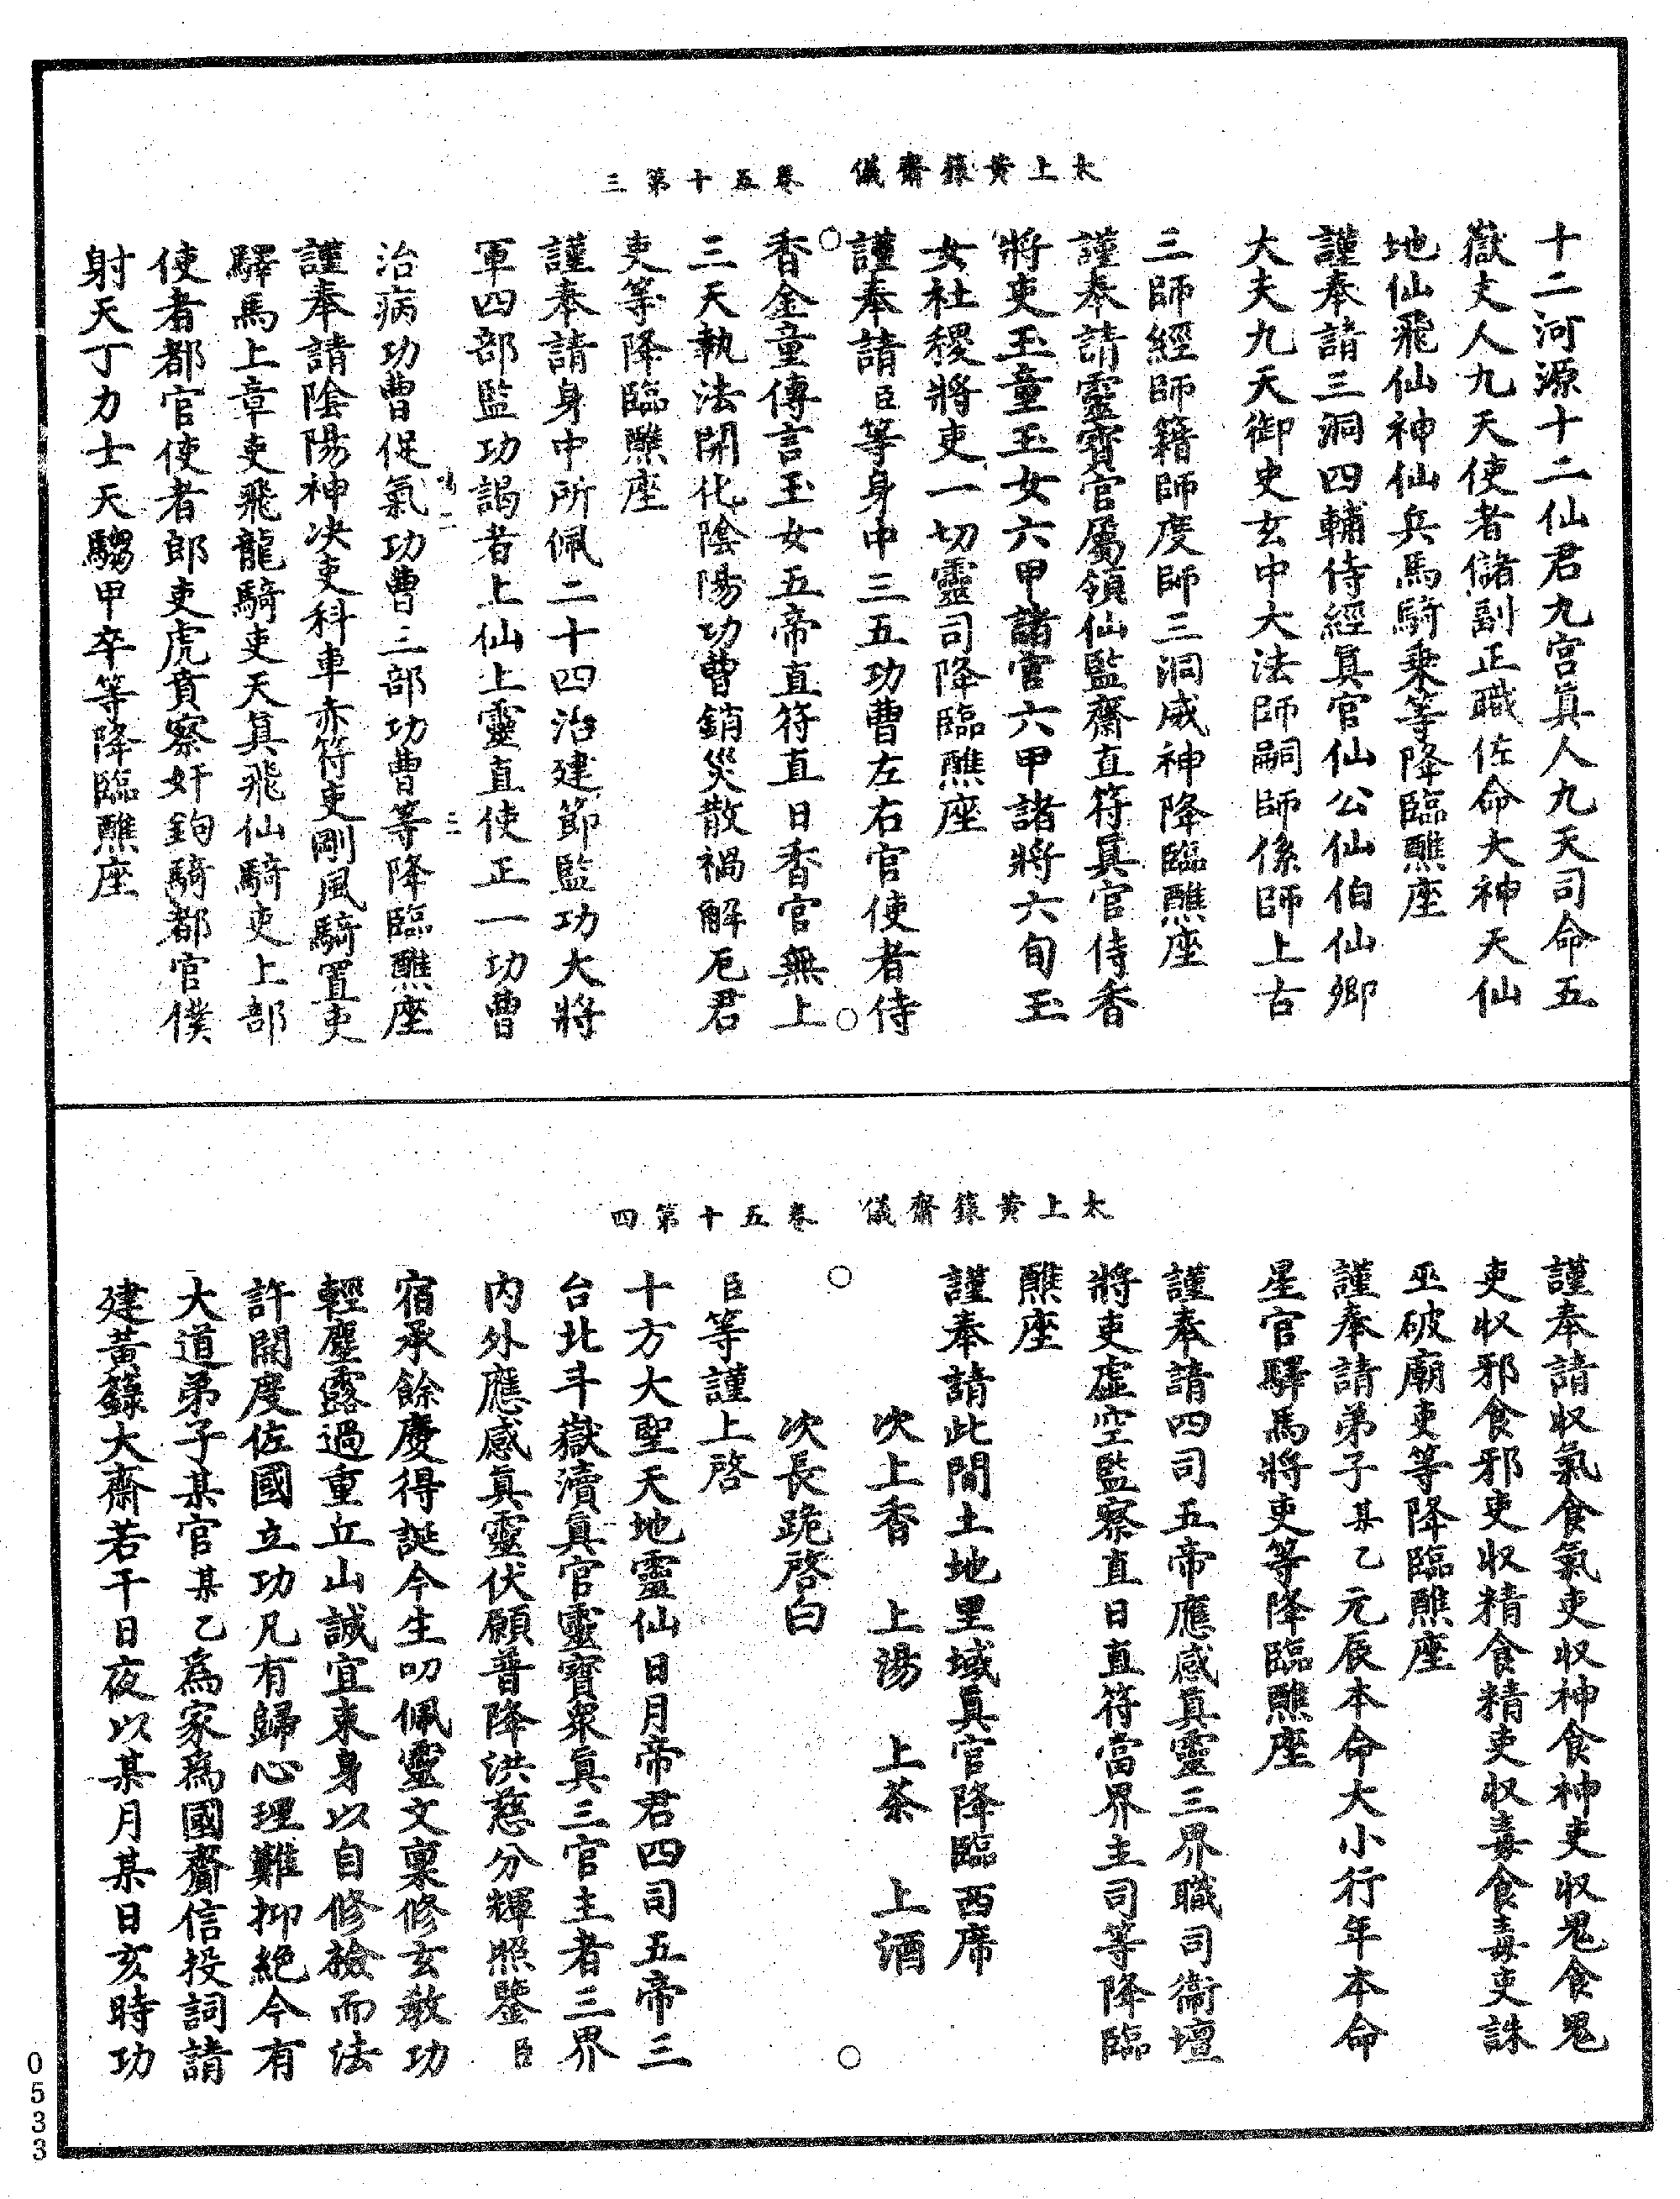 太上黃籙齋儀　卷五十第三
十二河源十二仙君九宮眞人九天司命五
嶽丈人九天使者儲副正職佐命大神天仙
地仙飛仙神仙兵馬騎乗等降臨醮座
謹奉請三洞四輔侍經眞官仙公仙伯仙卿
大夫九天御史玄中大法師嗣師係師上古
三師經師籍師度師三洞威神降臨醮座
謹奉請靈寳官屬領仙監齋直符眞官侍香
將吏玉童玉女六甲諸官六甲諸將六旬玉
女社稷將吏一切靈司降臨醮座
謹奉請臣等身中三五功曹左右官使者侍
香金童傳言玉女五帝直符直日香官無上
三天執法開化陰陽功曹銷災散禍解厄君
吏等降臨醮座
謹奉請身中所佩二十四治建節監功大將
軍四部監功謁者上仙上靈直使正一功曹
治病功曹促氣功曹三部功曹等降臨醮座
謹奉請陰陽神决吏科車赤符吏剛風騎置吏
驛馬上章吏飛龍騎吏天眞飛仙騎吏上部
使者都官使者郎吏虎賁察奸鉤騎都官僕
射天丁力士天騶甲卒等降臨醮座
太上黃籙齋儀　卷五十第四
謹奉請収氣食氣吏収神食神吏収鬼食鬼
吏収邪食邪吏収精食精吏収毒食毒吏誅
巫破廟吏等降臨醮座
謹奉請弟子某乙元辰本命大小行年本命
星官驛馬將吏等降臨醮座
謹奉請四司五帝應感眞靈三界職司衞壇
將吏虛空監察直日直符當界主司等降臨
醮座
謹奉請此間土地里域眞官降臨西席
次上香　上湯　上茶　上酒
次長跪啓白
臣等謹上啓
十方大聖天地靈仙日月帝君四司五帝三
台北斗嶽瀆眞官靈寳衆眞三官主者三界
内外應感眞靈伏願普降洪慈分輝照鑒臣
宿承餘慶得誕今生叨佩靈文禀修玄教功
輕塵露過重丘山誠宜束身以自修檢而法
許開度佐國立功凡有歸心理難抑絶今有
大道弟子某官某乙爲家爲國齎信投詞請
建黃籙大齋若干日夜以某月某日亥時功
0533